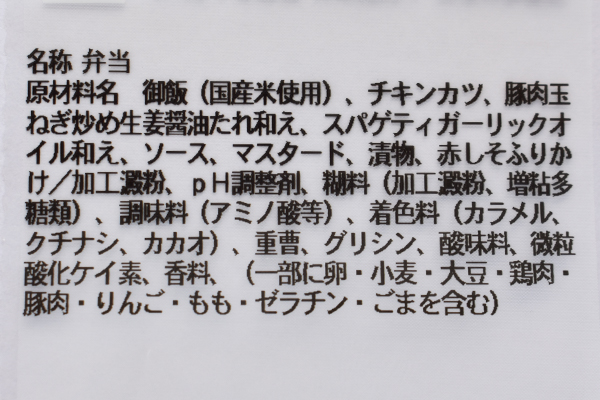 名称 弁当
原材料名　御飯（国産米使用）、チキンカツ、豚肉玉
ねぎ炒め生姜醤油たれ和え、スパゲティガーリックオ
イル和え、ソース、マスタード、漬物、赤しそふりか
け／加工澱粉、ｐＨ調整剤、糊料（加工澱粉、増粘多
糖類）、調味料（アミノ酸等）、着色料（カラメル、
クチナシ、カカオ）、重曹、グリシン、酸味料、微粒
酸化ケイ素、香料、（一部に卵・小麦・大豆・鶏肉・
豚肉・りんご・もも・ゼラチン・ごまを含む）